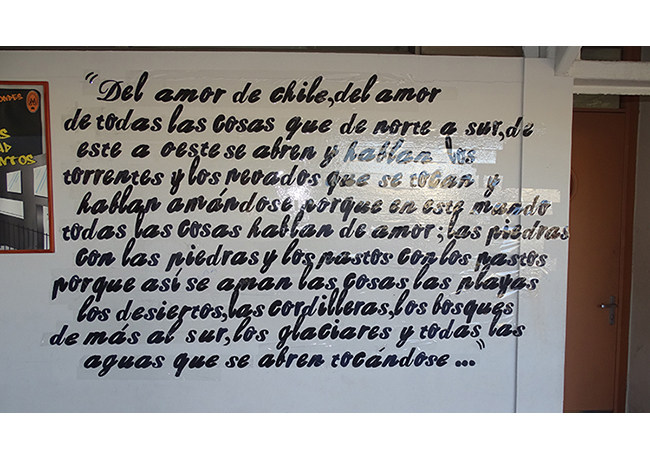 ONDES
S
AD
NTOS
"Del amor de chile,del amor
de todas las cosas que de norte a sur,de
este a oeste se abren y hablan los
torrentes y los nevados que se tocan y
hablan amándose porque en este mundo
todas las cosas hablan de amor;las piedras
con las piedras y los pastos con los pastos
porque así se aman las cosas las playas
los desiertos,las cordilleras,los bosques
de más al sur,los glaciares y todas las
aguas que se abren tocándose ..."